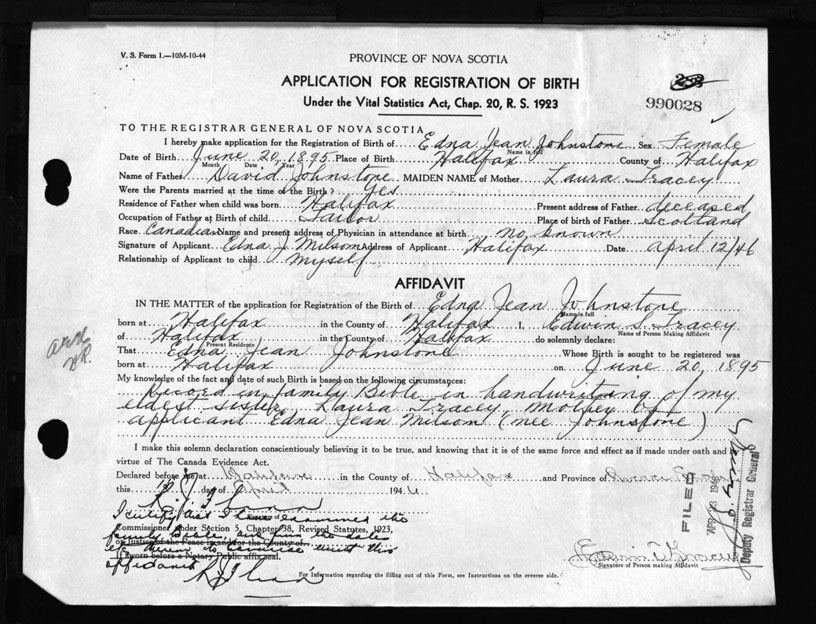 V. S. Form 1.—10M-10-44
PROVINCE OF NOVA SCOTIA
APPLICATION FOR REGISTRATION OF BIRTH
Under the Vital Statistics Act, Chap. 20, R. S. 1923
990028
TO THE REGISTRAR GENERAL OF NOVA SCOTIA
I hereby make application for the Registration of Birth of Edna Jean Johnstone Sex Female
Name in full
Date of Birth June 20, 1895 Place of Birth Halifax County of Halifax
Month Date Year
Name of Father David Johnstone MAIDEN NAME of Mother Laura Tracey
Were the Parents married at the time of the Birth? Yes
Residence of Father when child was born Halifax Present address of Father deceased
Occupation of Father at Birth of child Tailor Place of birth of Father Scotland
Race Canadian Name and present address of Physician in attendance at birth no known
Signature of Applicant Edna J. Milsom Address of Applicant Halifax Date April 12/46
Relationship of Applicant to child myself
AFFIDAVIT
IN THE MATTER of the application for Registration of the Birth of Edna Jean Johnstone
Name in full
born at Halifax in the County of Halifax I, Edwin S. Tracey
Name of Person Making Affidavit
of Halifax in the County of Halifax do solemnly declare:
Present Residence
That Edna Jean Johnstone Whose Birth is sought to be registered was
born at Halifax on June 20, 1895
My knowledge of the fact and date of such Birth is based on the following circumstances:
Record in family Bible in handwriting of my
eldest sister, Laura Tracey, Mother of
applicant Edna Jean Milsom (nee Johnstone)
I make this solemn declaration conscientiously believing it to be true, and knowing that it is of the same force and effect as if made under oath and by
virtue of The Canada Evidence Act.
Declared before me at Halifax in the County of Halifax and Province of Nova Scotia
this day of April 1946
I certify that I have examined the
Commissioner under Section 5, Chapter 38, Revised Statutes, 1923,
family Bible and find the dates
or Justice of the Peace in and for the County of
etc
If sworn before a Notary Public affix seal.
affidavit
FILED
APR 1946
Deputy Registrar General
Signature of Person making Affidavit
For Information regarding the filling out of this Form, see Instructions on the reverse side.